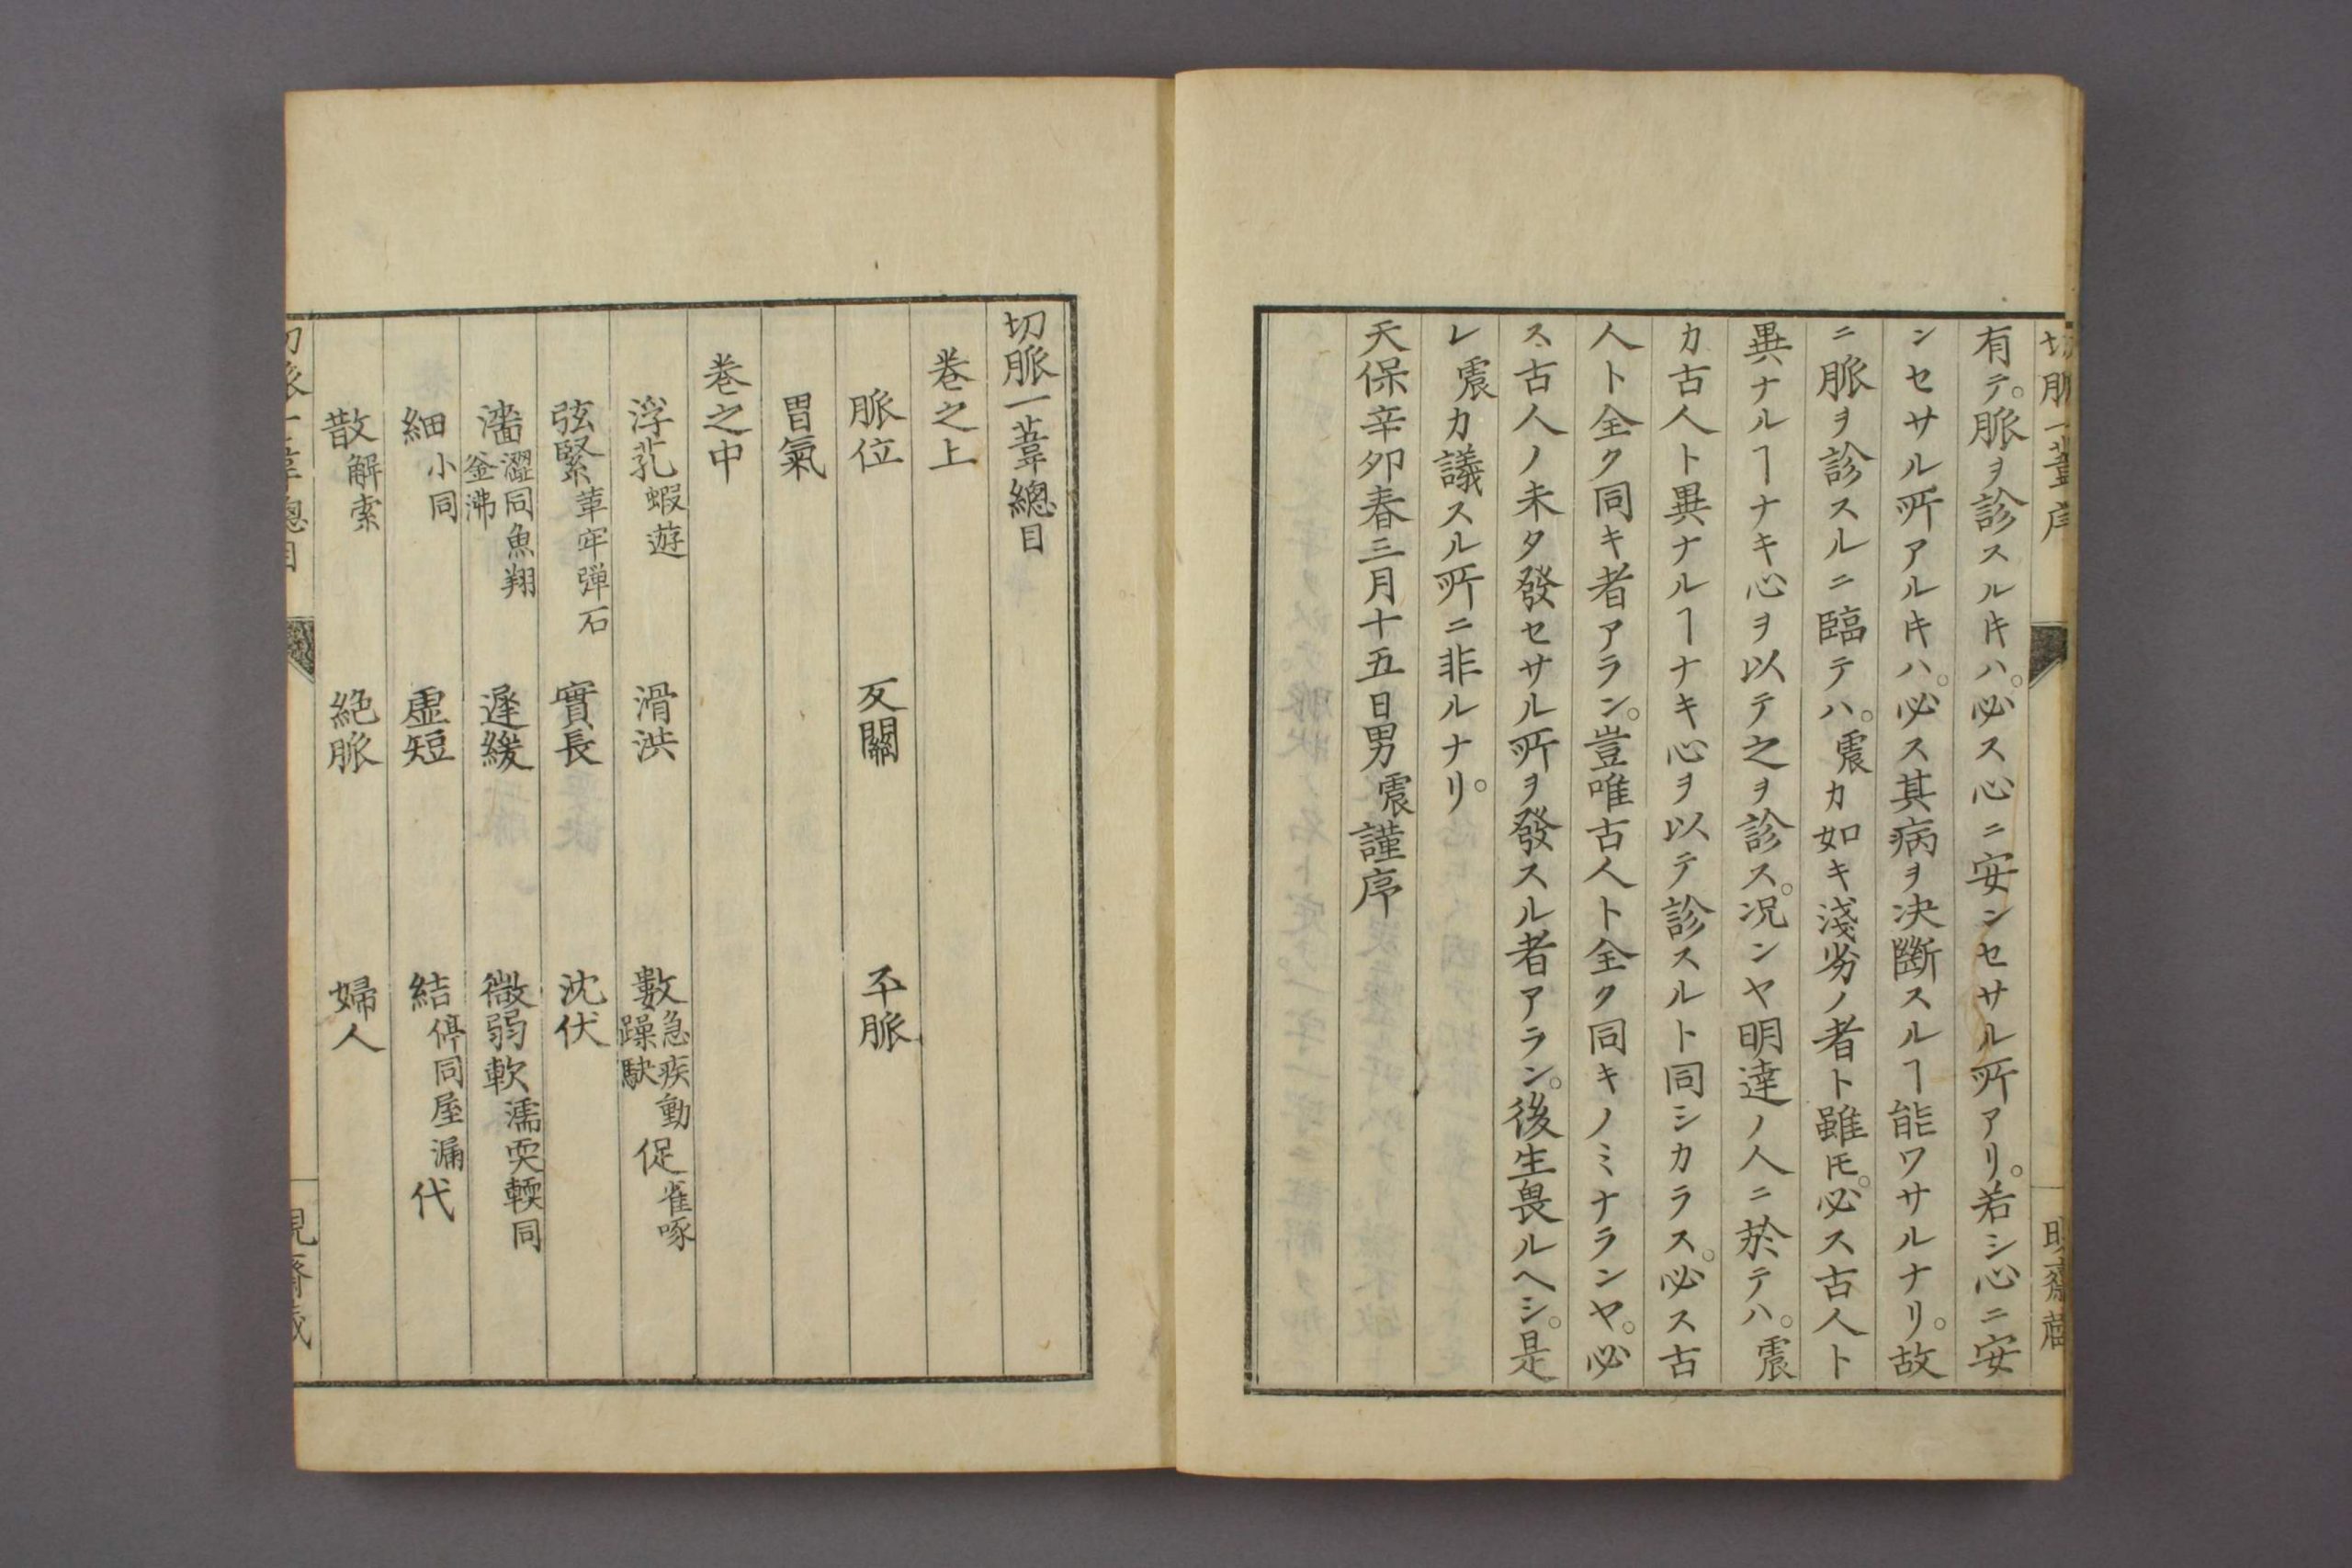 切脉一葦序
有テ。脈ヲ診スルキハ。必ス心ニ安ンセサル所アリ。若シ心ニ安
ンセサル所アルキハ。必ス其病ヲ決斷スルヿ能ワサルナリ。故
ニ脈ヲ診スルニ臨テハ。震カ如キ淺劣ノ者ト雖𪜈。必ス古人ト
異ナルヿナキ心ヲ以テ之ヲ診ス。況ンヤ明達ノ人ニ於テハ。震
カ古人ト異ナルヿナキ心ヲ以テ診スルト同シカラス。必ス古
人ト全ク同キ者アラン。豈唯古人ト全ク同キノミナランヤ。必
ス古人ノ未タ發セサル所ヲ發スル者アラン。後生畏ルヘシ。是
レ震カ議スル所ニ非ルナリ。
天保辛卯春三月十五日男震謹序
切脈一葦總目
巻之上
脈位 反關 平脈
胃氣
巻之中
浮芤蝦遊 滑洪 數急疾動躁駃促雀啄
弦緊革牢彈石 實長 沈伏
濇澀同魚翔釜沸 遲緩 微弱軟濡耎輭同
細小同 虛短 結停同屋漏代
散解索 絶脈 婦人